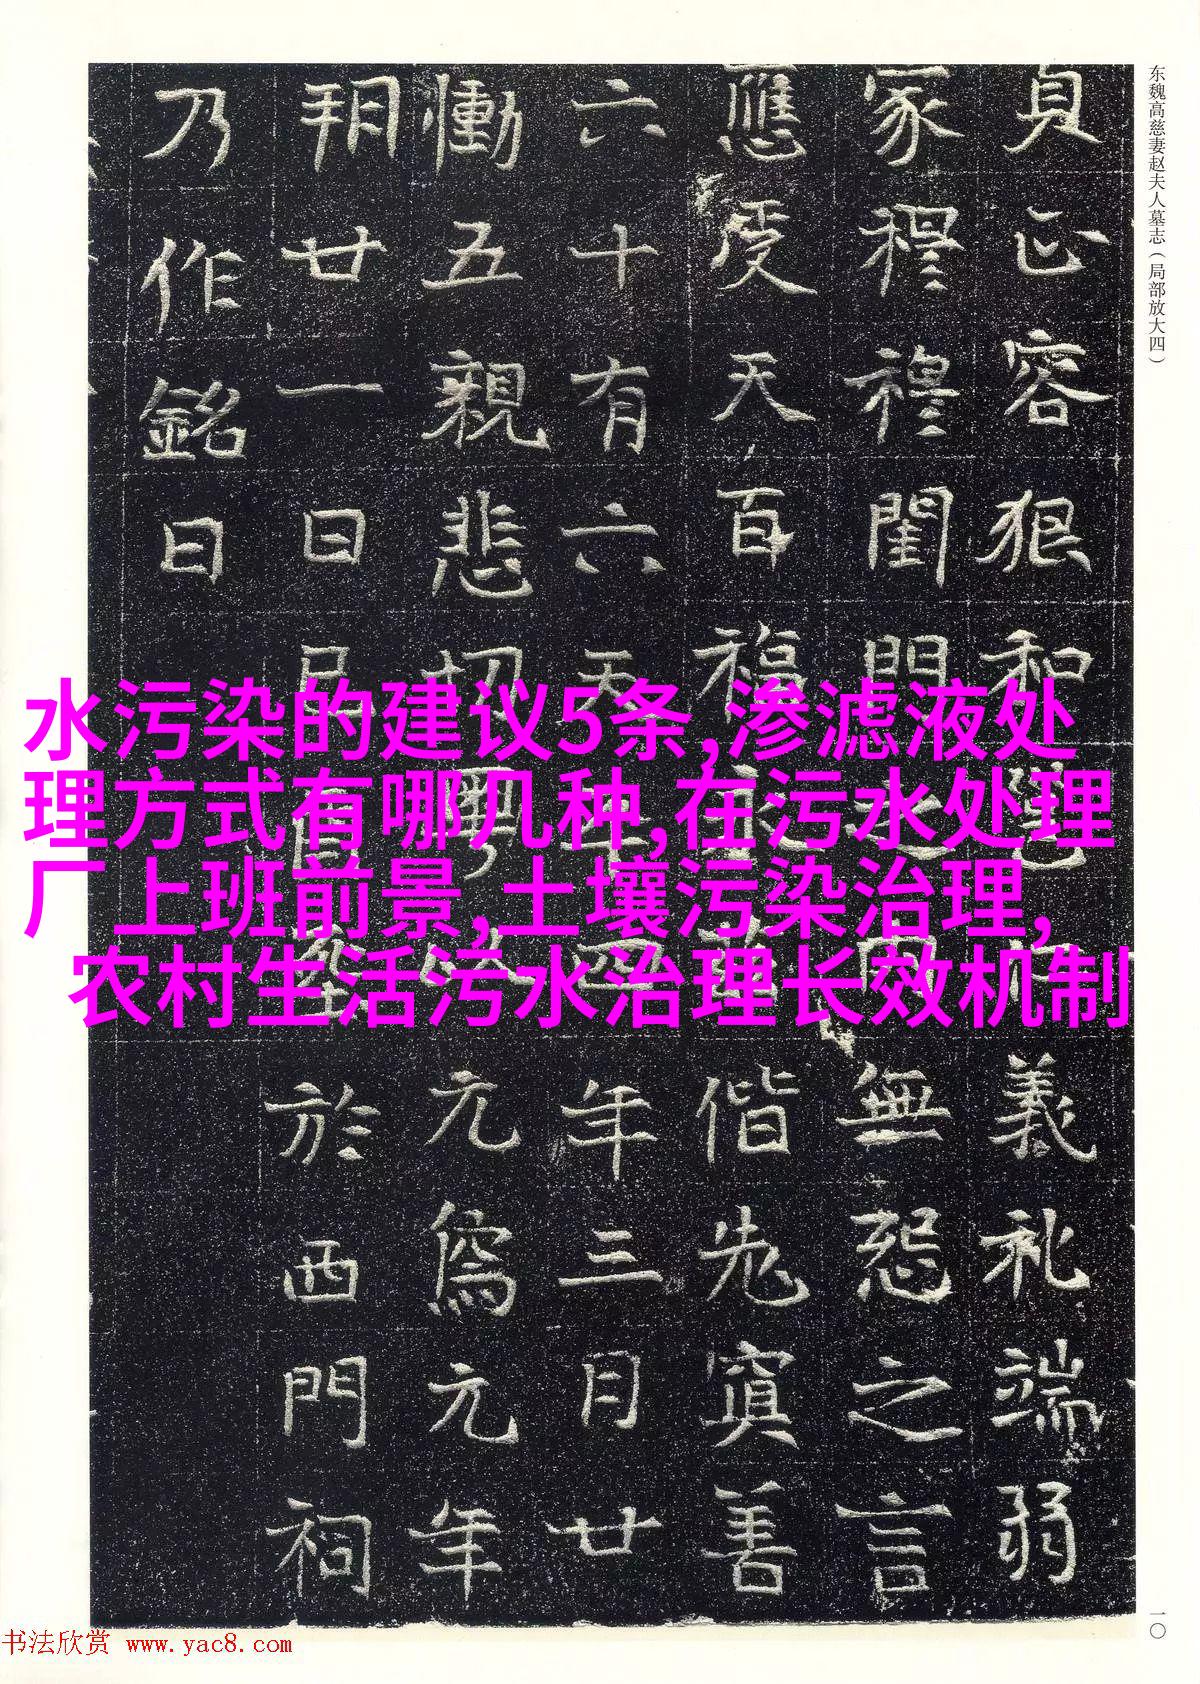 东魏高慈妻赵夫人墓志（局部放大四）
貞正容狠和義礼端弱
家穆穆閨門之内無怨之言
應受天百福偕先寘善
六十有六天平四年三月廿
慟五親悲切粤以元為元年
朔廿一日己酉於西門祠
乃作銘曰
水污染的建议5条,渗滤液处
理方式有哪几种,在污水处理
厂上班前景,土壤污染治理,
农村生活污水治理长效机制
一〇
书法欣赏 www.yac8.com